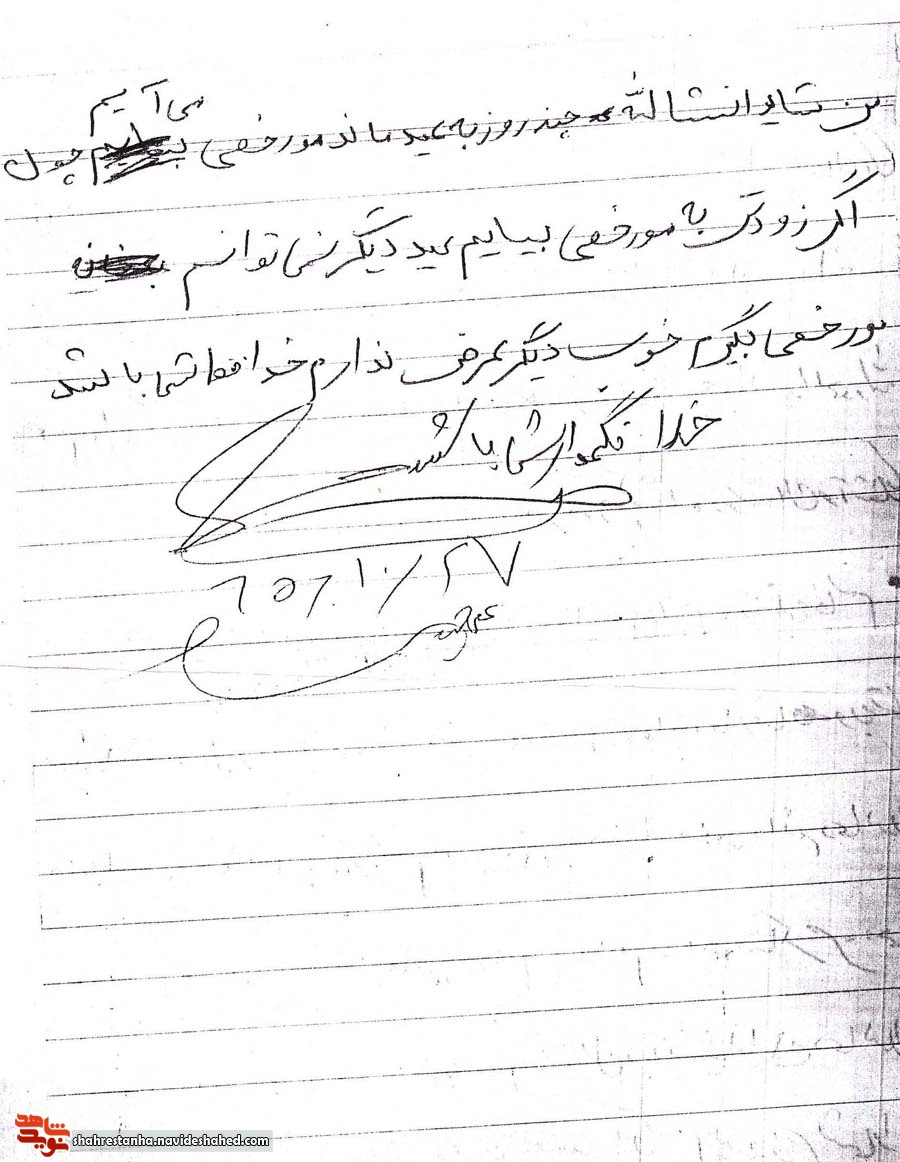 من شاید انشاالله چند روز به عید مانده مورخصی می آیم چون
اگر زودتر به مورخصی بیایم عید دیگر نمی توانم
مورخصی بگیرم خوب دیگر عرض ندارم خدافظ شما باشد
خدا نگهدار شما باشد
۶۵/۱۰/۲۷
نوید شاهد
shahrestanha.navideshahed.com